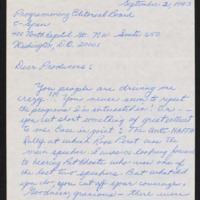 September 21, 1993
Programming Editorial Board
C-Span
400 North Capitol St. NW Suite 650
Washington, D.C. 20001
Dear Producers:
You people are driving me
crazy!! You never seem to repeat
the programs I'm interested in! Or --
you cut short something of great interest
to me. Case in point: The anti-NAFTA
Rally at which Ross Perot was the
main speaker. I was looking forward
to hearing Pat Choate who was one of
the best two speakers. But what did
you do, you cut off your coverage.
Producers, gracious - there were